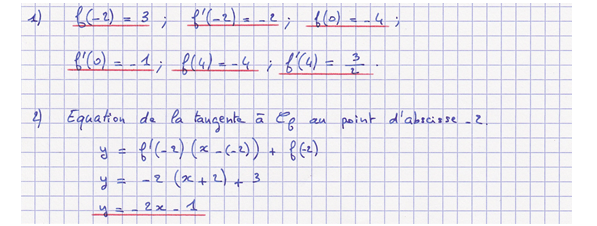 1) f(-2) = 3 ; f'(-2) = -2 ; f(0) = -4 ;
f'(0) = -1 ; f(4) = -4 ; f'(4) = 3/2 .
2) Equation de la tangente à Cf au point d'abscisse -2.
y = f'(-2) (x - (-2)) + f(-2)
y = -2 (x + 2) + 3
y = -2x - 1